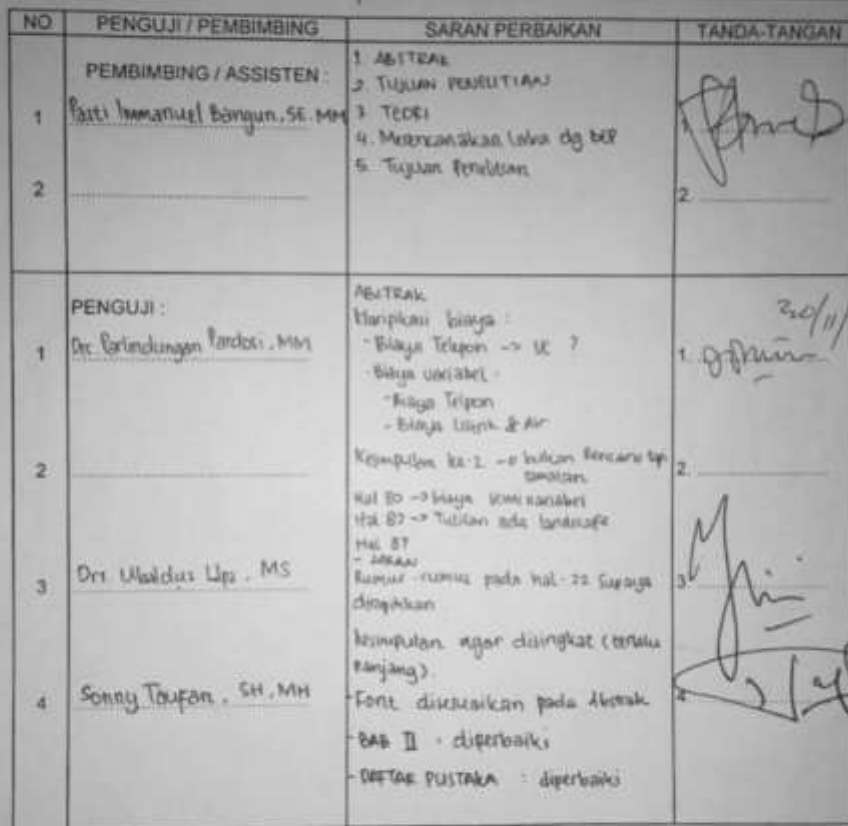 NO PENGUJI / PEMBIMBING SARAN PERBAIKAN TANDA-TANGAN
PEMBIMBING / ASSISTEN :
1 Pasti Immanuel Bangun, SE. MM
2
1. ABSTRAK
2. TUJUAN PENELITIAN
3. TEORI
4. Merencanakan Laba dg BEP
5. Tujuan Penelitian
1.
2.
PENGUJI :
1 Drs. Parlindungan Pardosi, MM
2
3 Drs Ubaldus Upa, MS
4 Sonny Taufan, SH, MH
ABSTRAK
biaya :
- Biaya Telepon -> ?
- Biaya variabel -
- Biaya Telpon
- Biaya Listrik & Air
Kesimpulan ke-2 -> bukan Rencana tp
Hal 80 -> biaya semi variabel
Hal 87 -> Tulisan ada landscape
Hal 87
- SARAN
Rumus-rumus pada hal-22 supaya
dirapihkan
kesimpulan agar disingkat (terlalu
Panjang).
- Font disesuaikan pada Abstrak
- BAB II : diperbaiki
- DAFTAR PUSTAKA : diperbaiki
20/11/
1.
2.
3.
4.